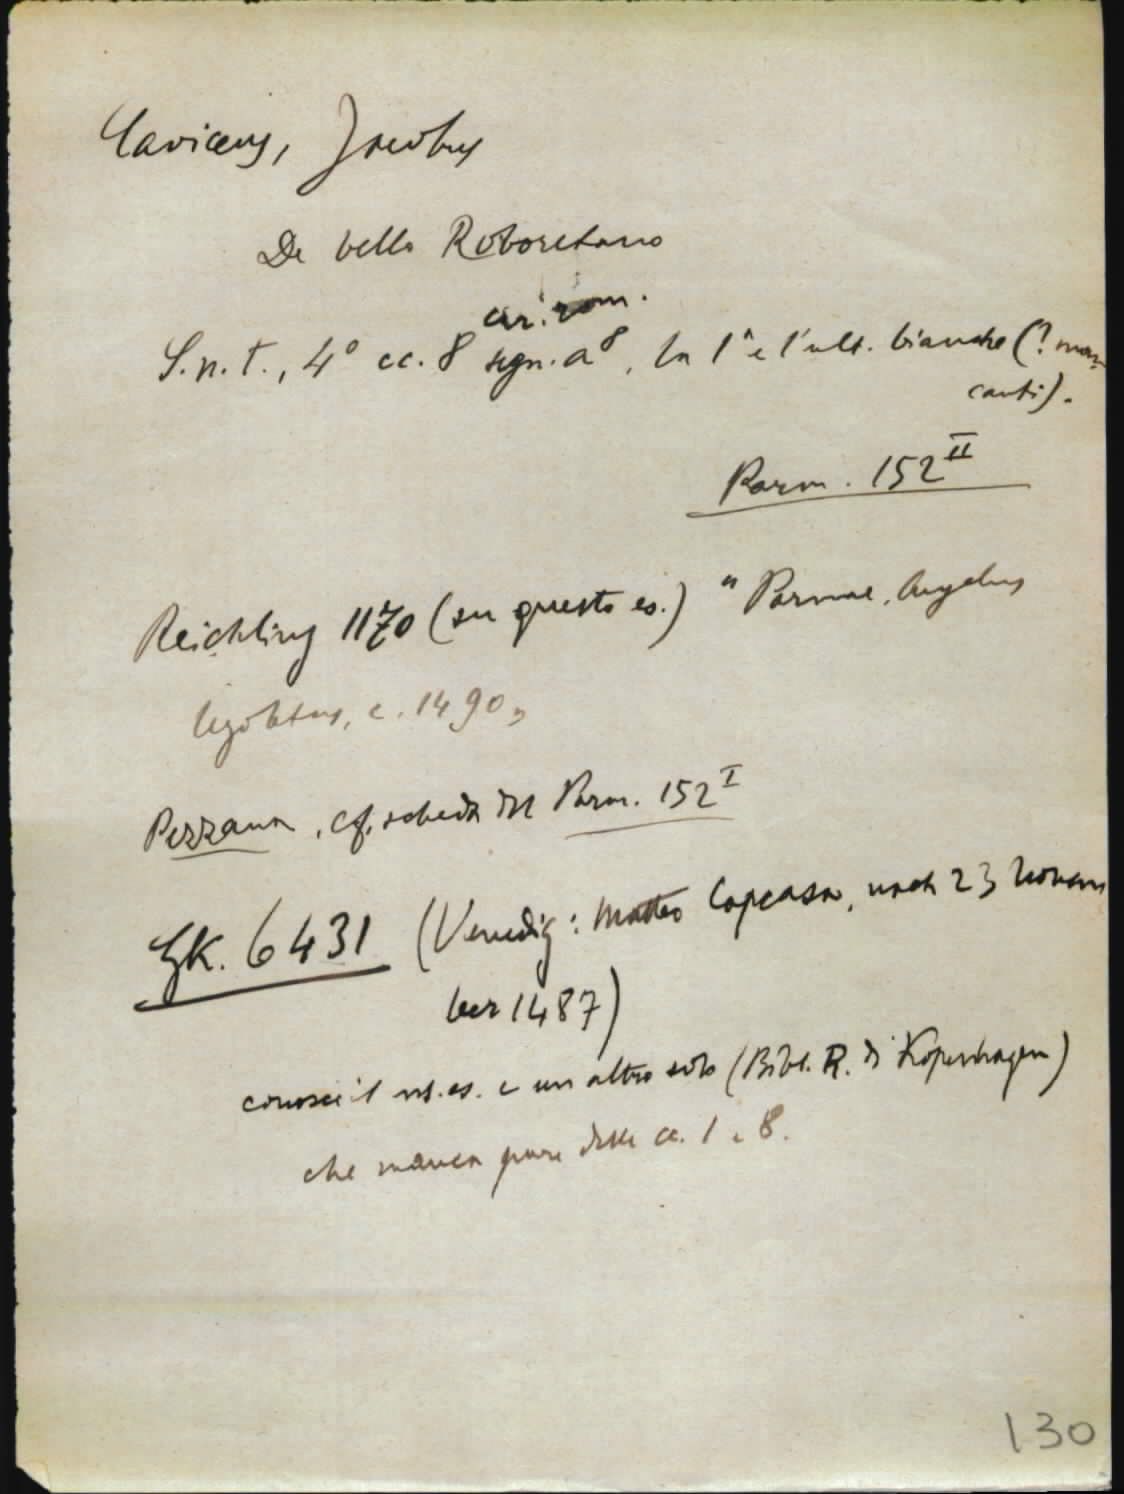 Caviceus, Jacobus
De bello Roboretano
car. rom.
S.n.t., 4° cc. 8 segn. a⁸, la 1ª e l'ult. bianche (? man-
canti).
Parm. 152 II
Reichling 1170 (su questo es.) "Parmae, Angelus
Ugoletus, c. 1490"
Pezzana, cf. scheda del Parm. 152 I
GK. 6431 (Venedig: Matteo Capcasa, nach 23 Novem
ber 1487)
conosce il ns. es. e un altro solo (Bibl. R. di Kopenhagen)
che manca pure delle cc. 1 e 8.
130